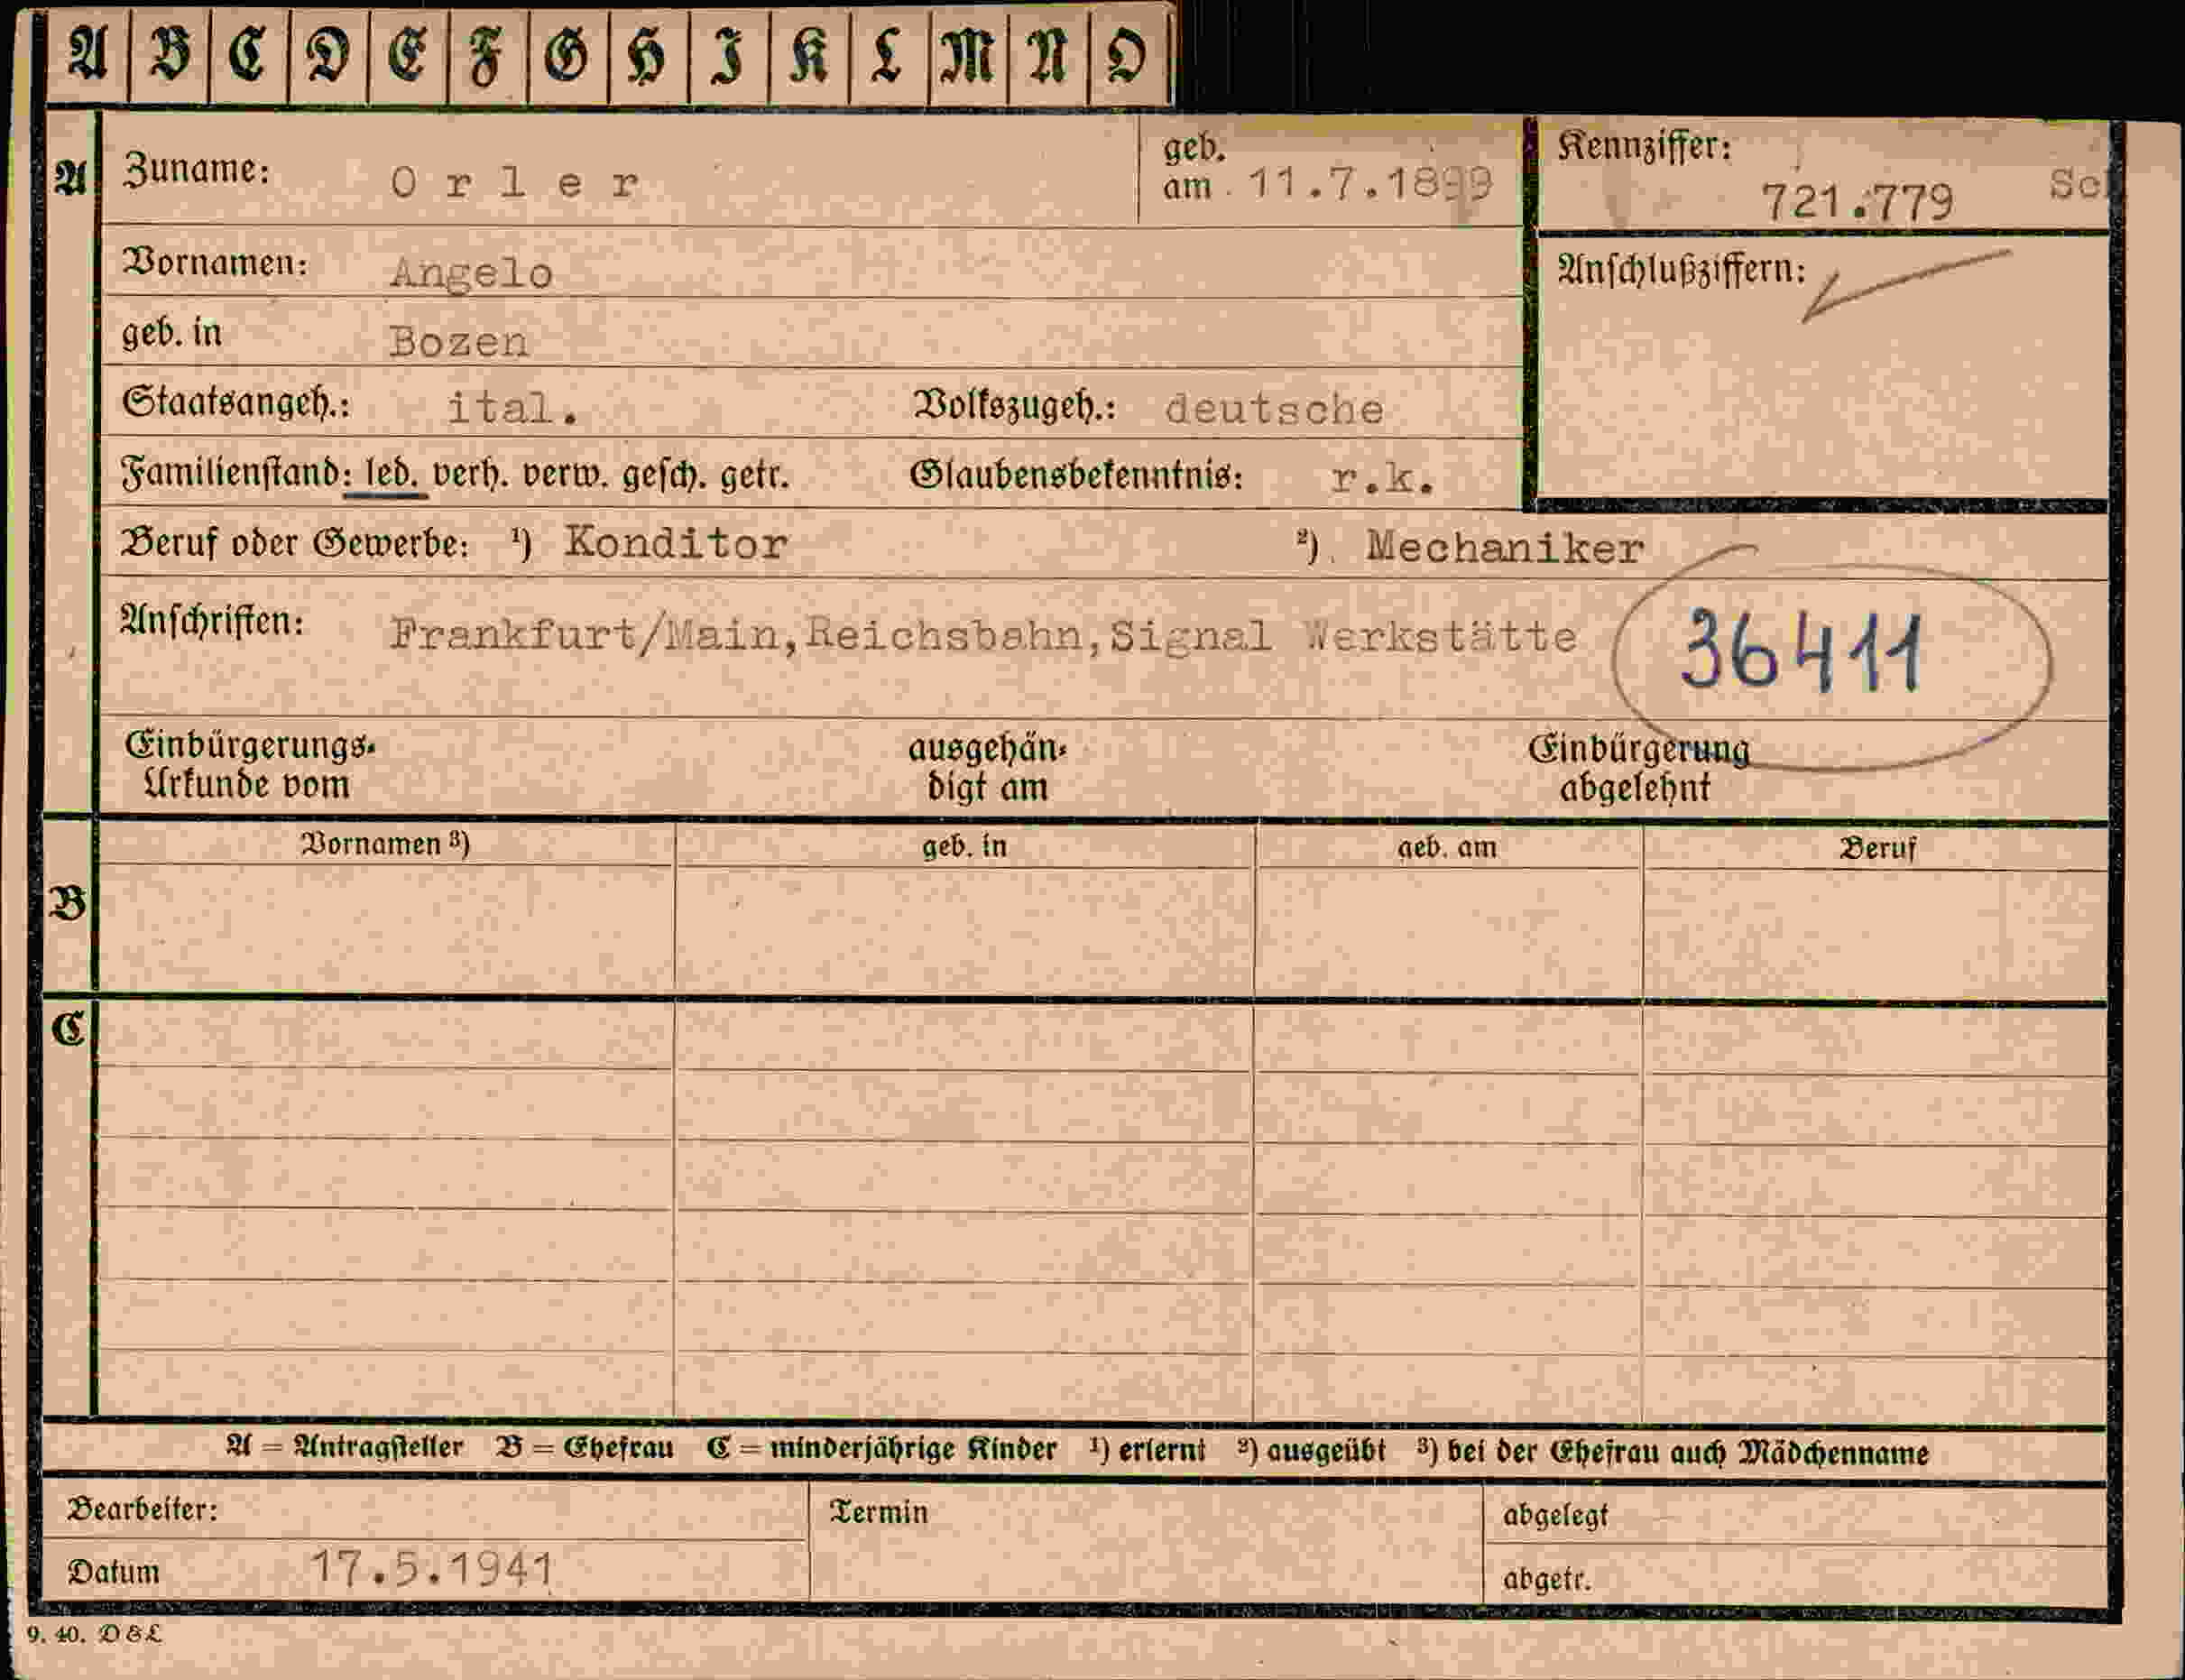 A B C D E F G H I K L M N O
A Zuname: Orler geb. am 11.7.1899 Kennziffer: 721.779
Vornamen: Angelo Anschlußziffern:
geb. in Bozen
Staatsangeh.: ital. Volkszugeh.: deutsche
Familienstand: led. verh. verw. gesch. getr. Glaubensbekenntnis: r.k.
Beruf oder Gewerbe: ¹) Konditor ²) Mechaniker
Anschriften: Frankfurt/Main,Reichsbahn,Signal Werkstätte 36411
Einbürgerungs- ausgehän- Einbürgerung
Urkunde vom digt am abgelehnt
Vornamen ³) geb. in geb. am Beruf
B
C
A = Antragsteller B = Ehefrau C = minderjährige Kinder ¹) erlernt ²) ausgeübt ³) bei der Ehefrau auch Mädchenname
Bearbeiter: Termin abgelegt
Datum 17.5.1941 abgetr.
9. 40. D & L